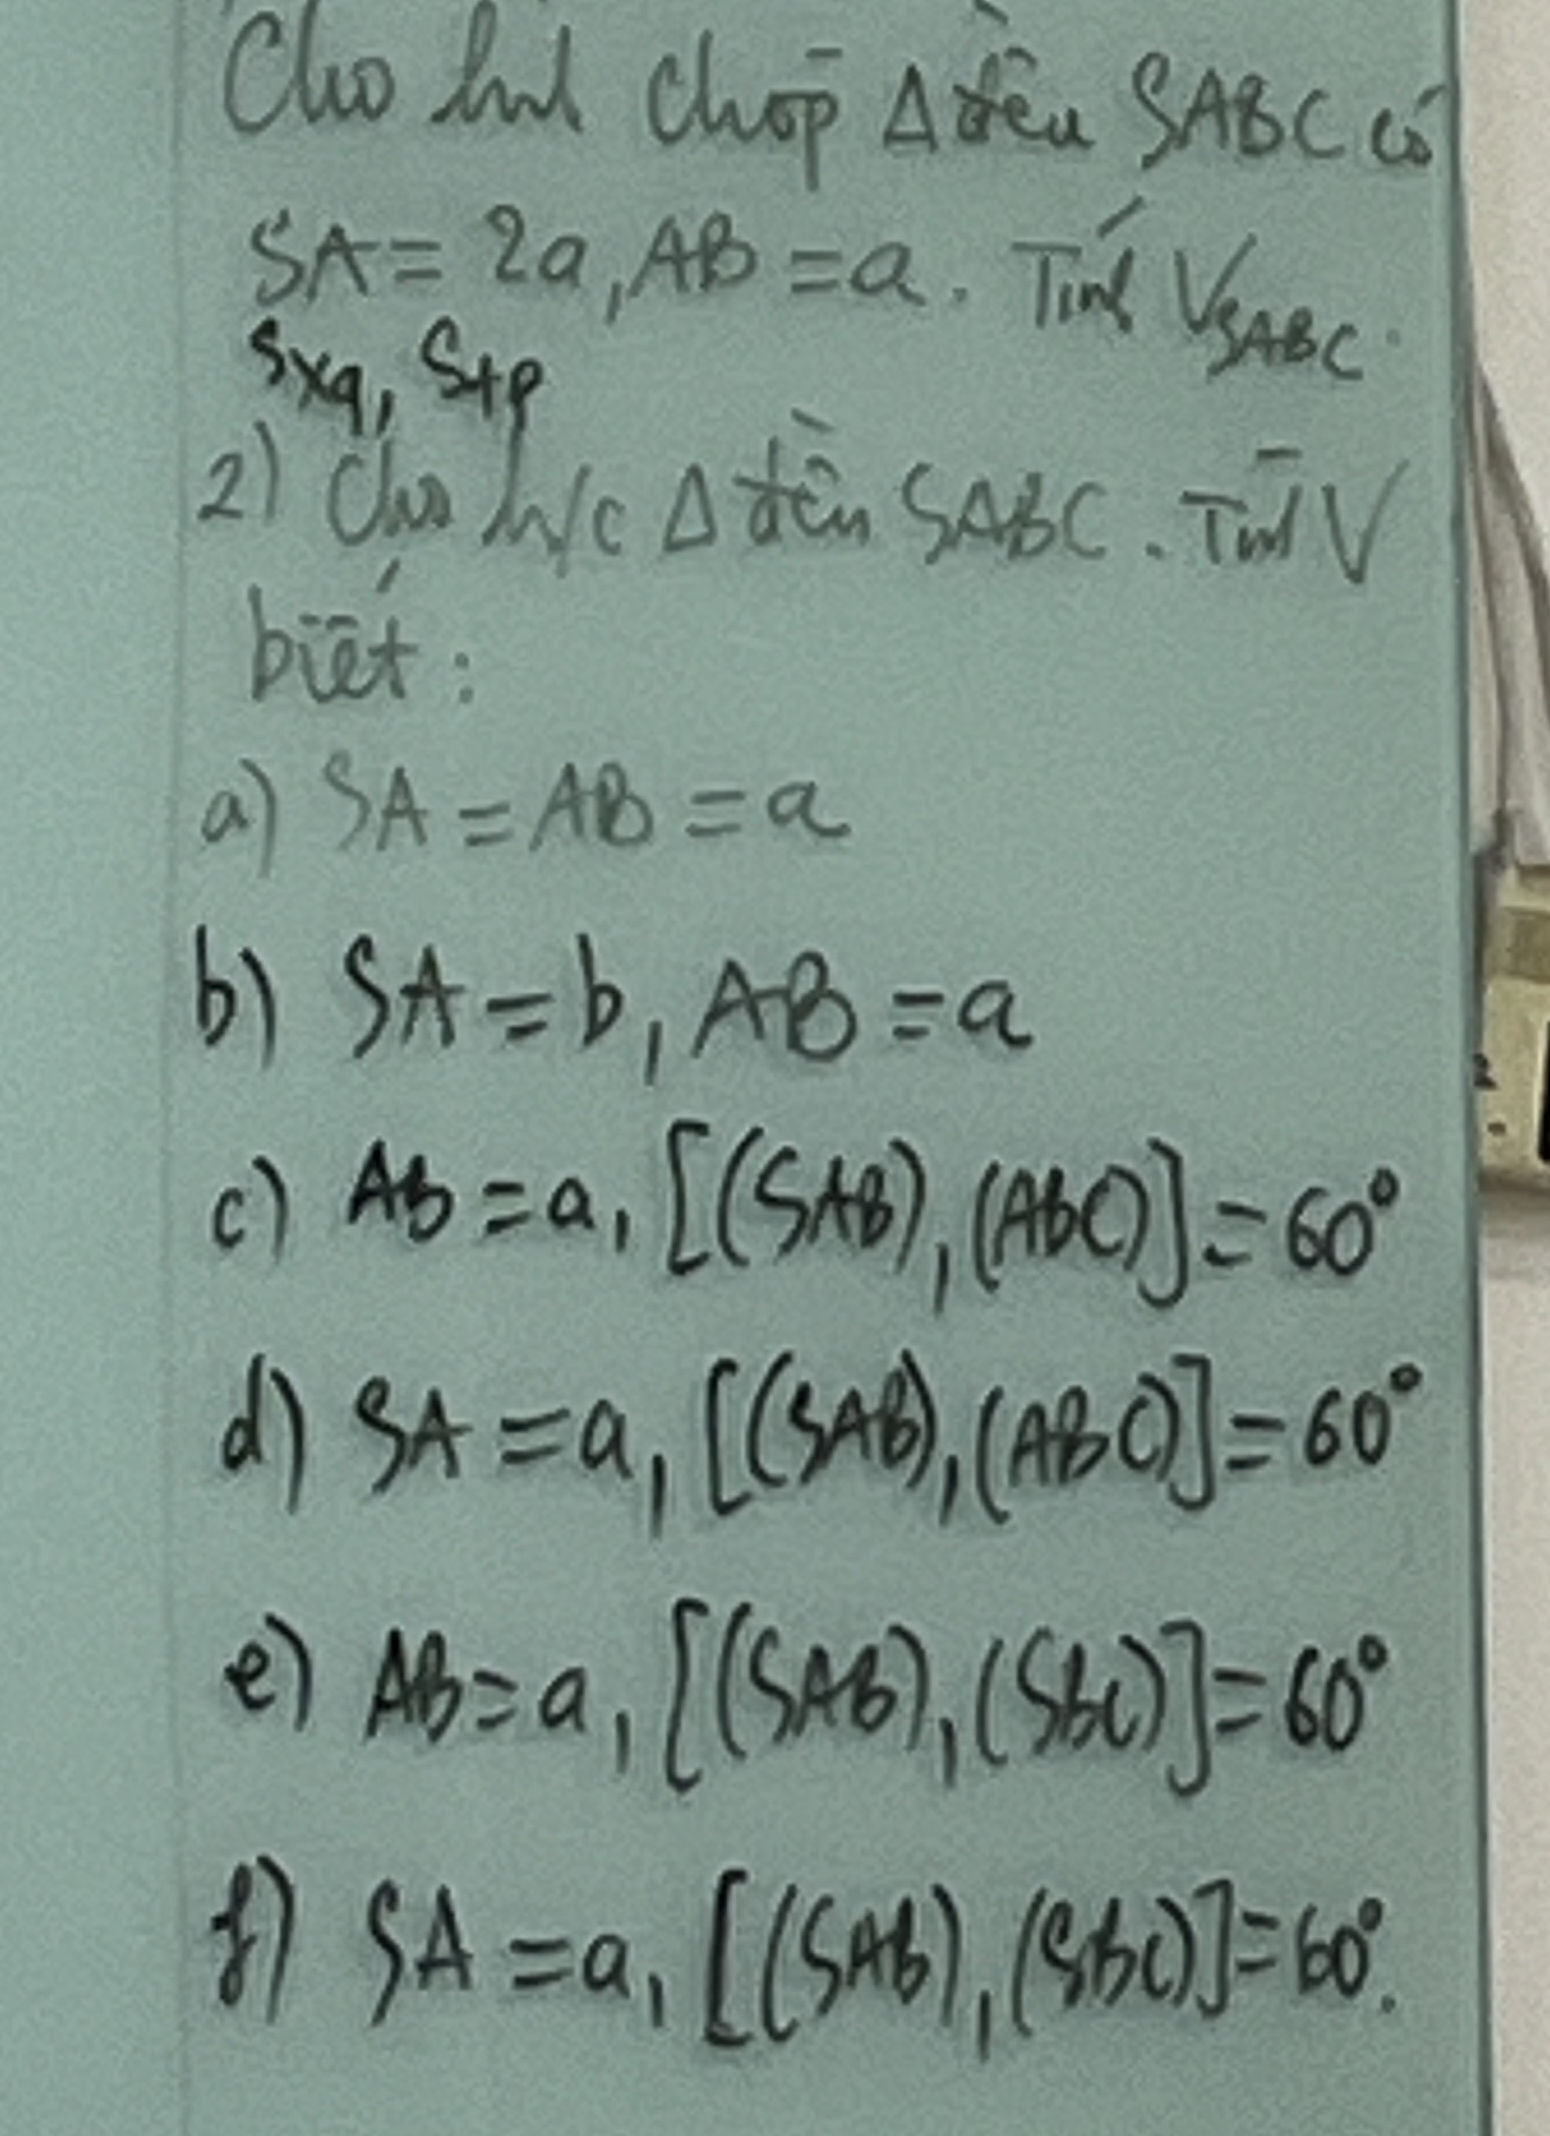 Cho hình chóp Δ đều SABC có
SA = 2a, AB = a. Tính V_SABC.
Sxq, Stp
2) Cho h/c Δ đều SABC. Tính V
biết:
a) SA = AB = a
b) SA = b, AB = a
c) AB = a, [(SAB), (ABC)] = 60°
d) SA = a, [(SAB), (ABC)] = 60°
e) AB = a, [(SAB), (SBC)] = 60°
f) SA = a, [(SAB), (SBC)] = 60°.